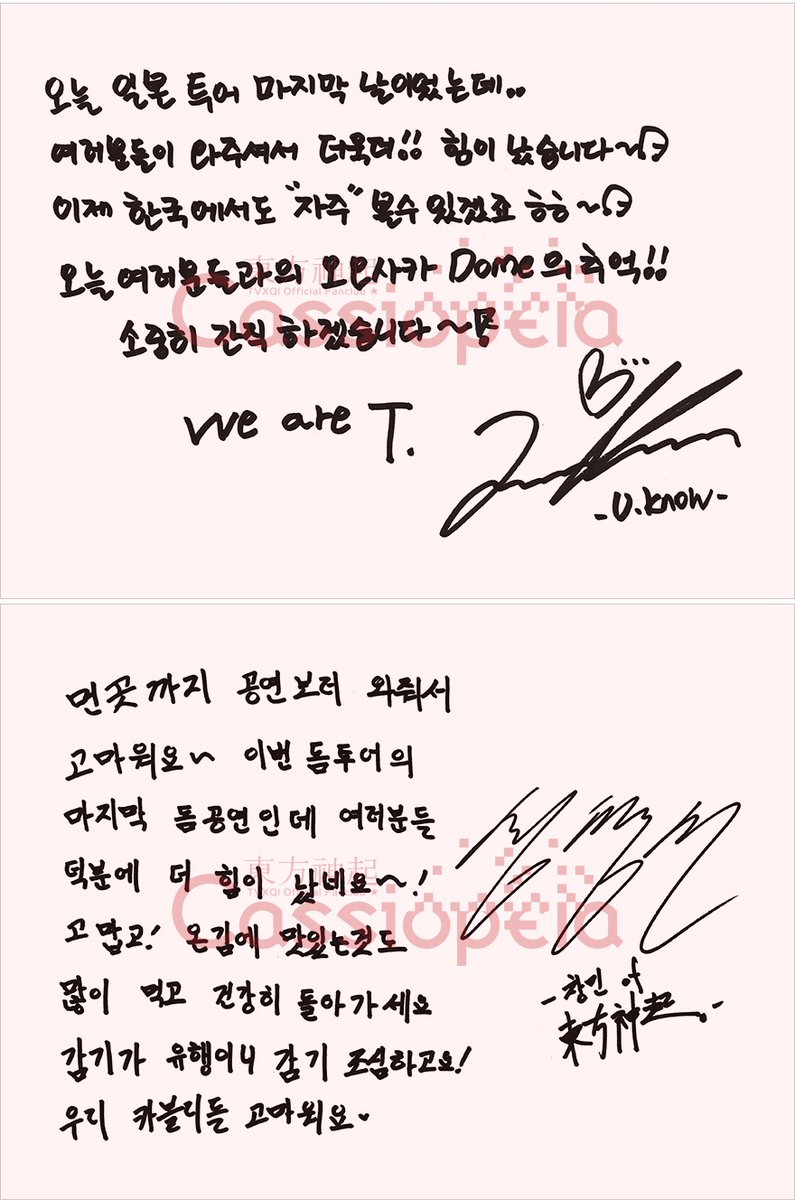 오늘 일본 투어 마지막 날이었는데..
여러분들이 와주셔서 더욱더!! 힘이 났습니다~
이제 한국에서도 "자주" 볼수 있겠죠 ㅎㅎ~
오늘 여러분들과의 오오사카 Dome의 추억!!
소중히 간직 하겠습니다~
We are T.
-U.know-
東方神起
TVXQ! Official Fanclub ★
Cassiopeia
먼곳까지 공연보러 와줘서
고마워요~ 이번 돔투어의
마지막 돔공연인데 여러분들
덕분에 더 힘이 났네요~!
고맙고! 온김에 맛있는것도
많이 먹고 건강히 돌아가세요
감기가 유행이니 감기 조심하고요!
우리 카블리들 고마워요♥
-창민 of
東方神起.-
東方神起
TVXQ! Official Fanclub ★
Cassiopeia